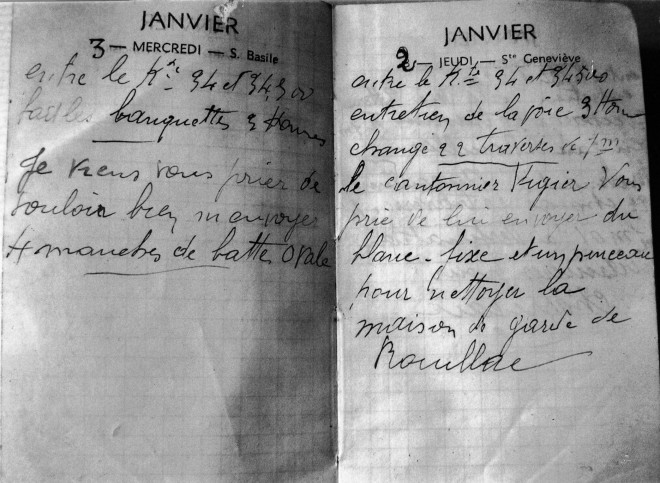 JANVIER
3 — MERCREDI — S. Basile
entre le Kre 94 et 94,500
banquettes 3 homes
Je viens vous prier de
vouloir bien m envoyer
4 manches de battes ovale
JANVIER
2 — JEUDI — Ste Geneviève
entre le Kre 94 et 94500
entretien de la voie 3 Hom
changé 22 traverses de
le cantonnier Vigier Vous
prie de lui envoyer du
blanc-fixe et un pinceau
pour nettoyer la
maison de garde de
Rouillac